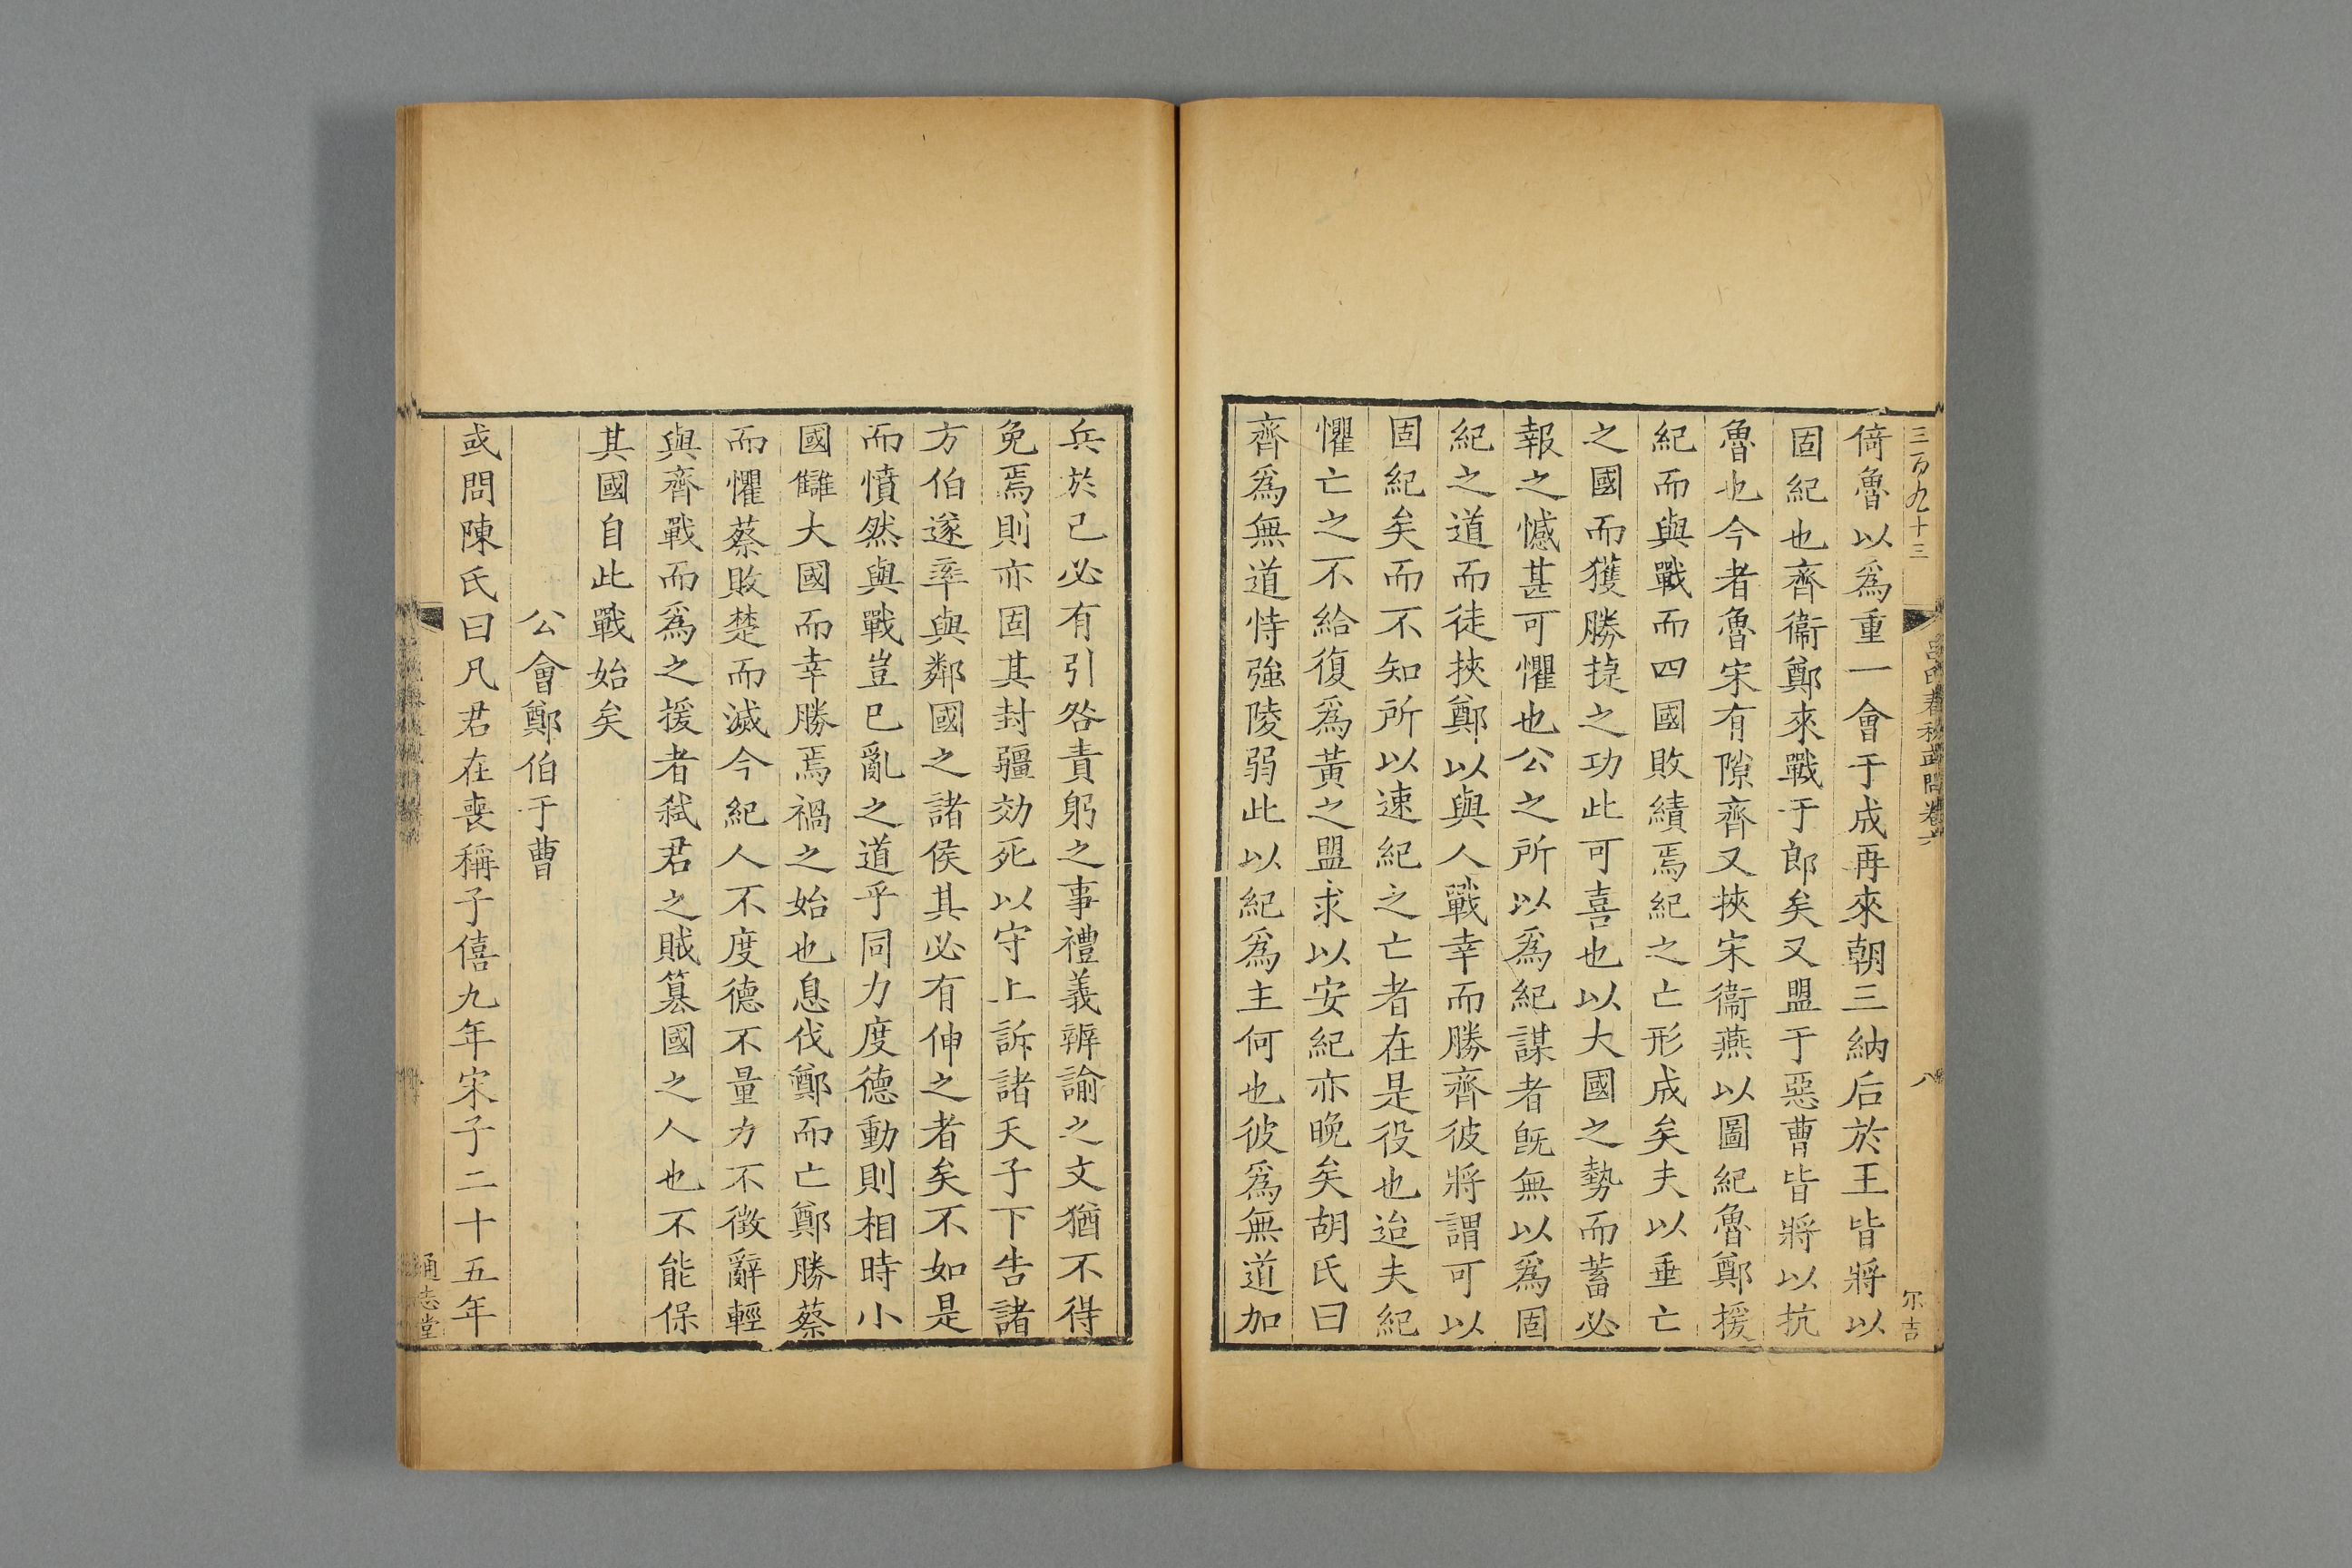 三百九十三
呂氏春秋或問卷六
八
尔吉
倚魯以爲重一會于成再來朝三納后於王皆將以
固紀也齊衞鄭來戰于郎矣又盟于惡曹皆將以抗
魯也今者魯宋有隙齊又挾宋衞燕以圖紀魯鄭援
紀而與戰而四國敗績焉紀之亡形成矣夫以垂亡
之國而獲勝捷之功此可喜也以大國之勢而蓄必
報之憾甚可懼也公之所以爲紀謀者旣無以爲固
紀之道而徒挾鄭以與人戰幸而勝齊彼將謂可以
固紀矣而不知所以速紀之亡者在是役也迨夫紀
懼亡之不給復爲黃之盟求以安紀亦晚矣胡氏曰
齊爲無道恃強陵弱此以紀爲主何也彼爲無道加
兵於己必有引咎責躬之事禮義辨諭之文猶不得
免焉則亦固其封疆効死以守上訴諸天子下告諸
方伯遂率與鄰國之諸侯其必有伸之者矣不如是
而憤然與戰豈已亂之道乎同力度德動則相時小
國讎大國而幸勝焉禍之始也息伐鄭而亡鄭勝蔡
而懼蔡敗楚而滅今紀人不度德不量力不徵辭輕
與齊戰而爲之援者弒君之賊篡國之人也不能保
其國自此戰始矣
公會鄭伯于曹
或問陳氏曰凡君在喪稱子僖九年宋子二十五年
通志堂